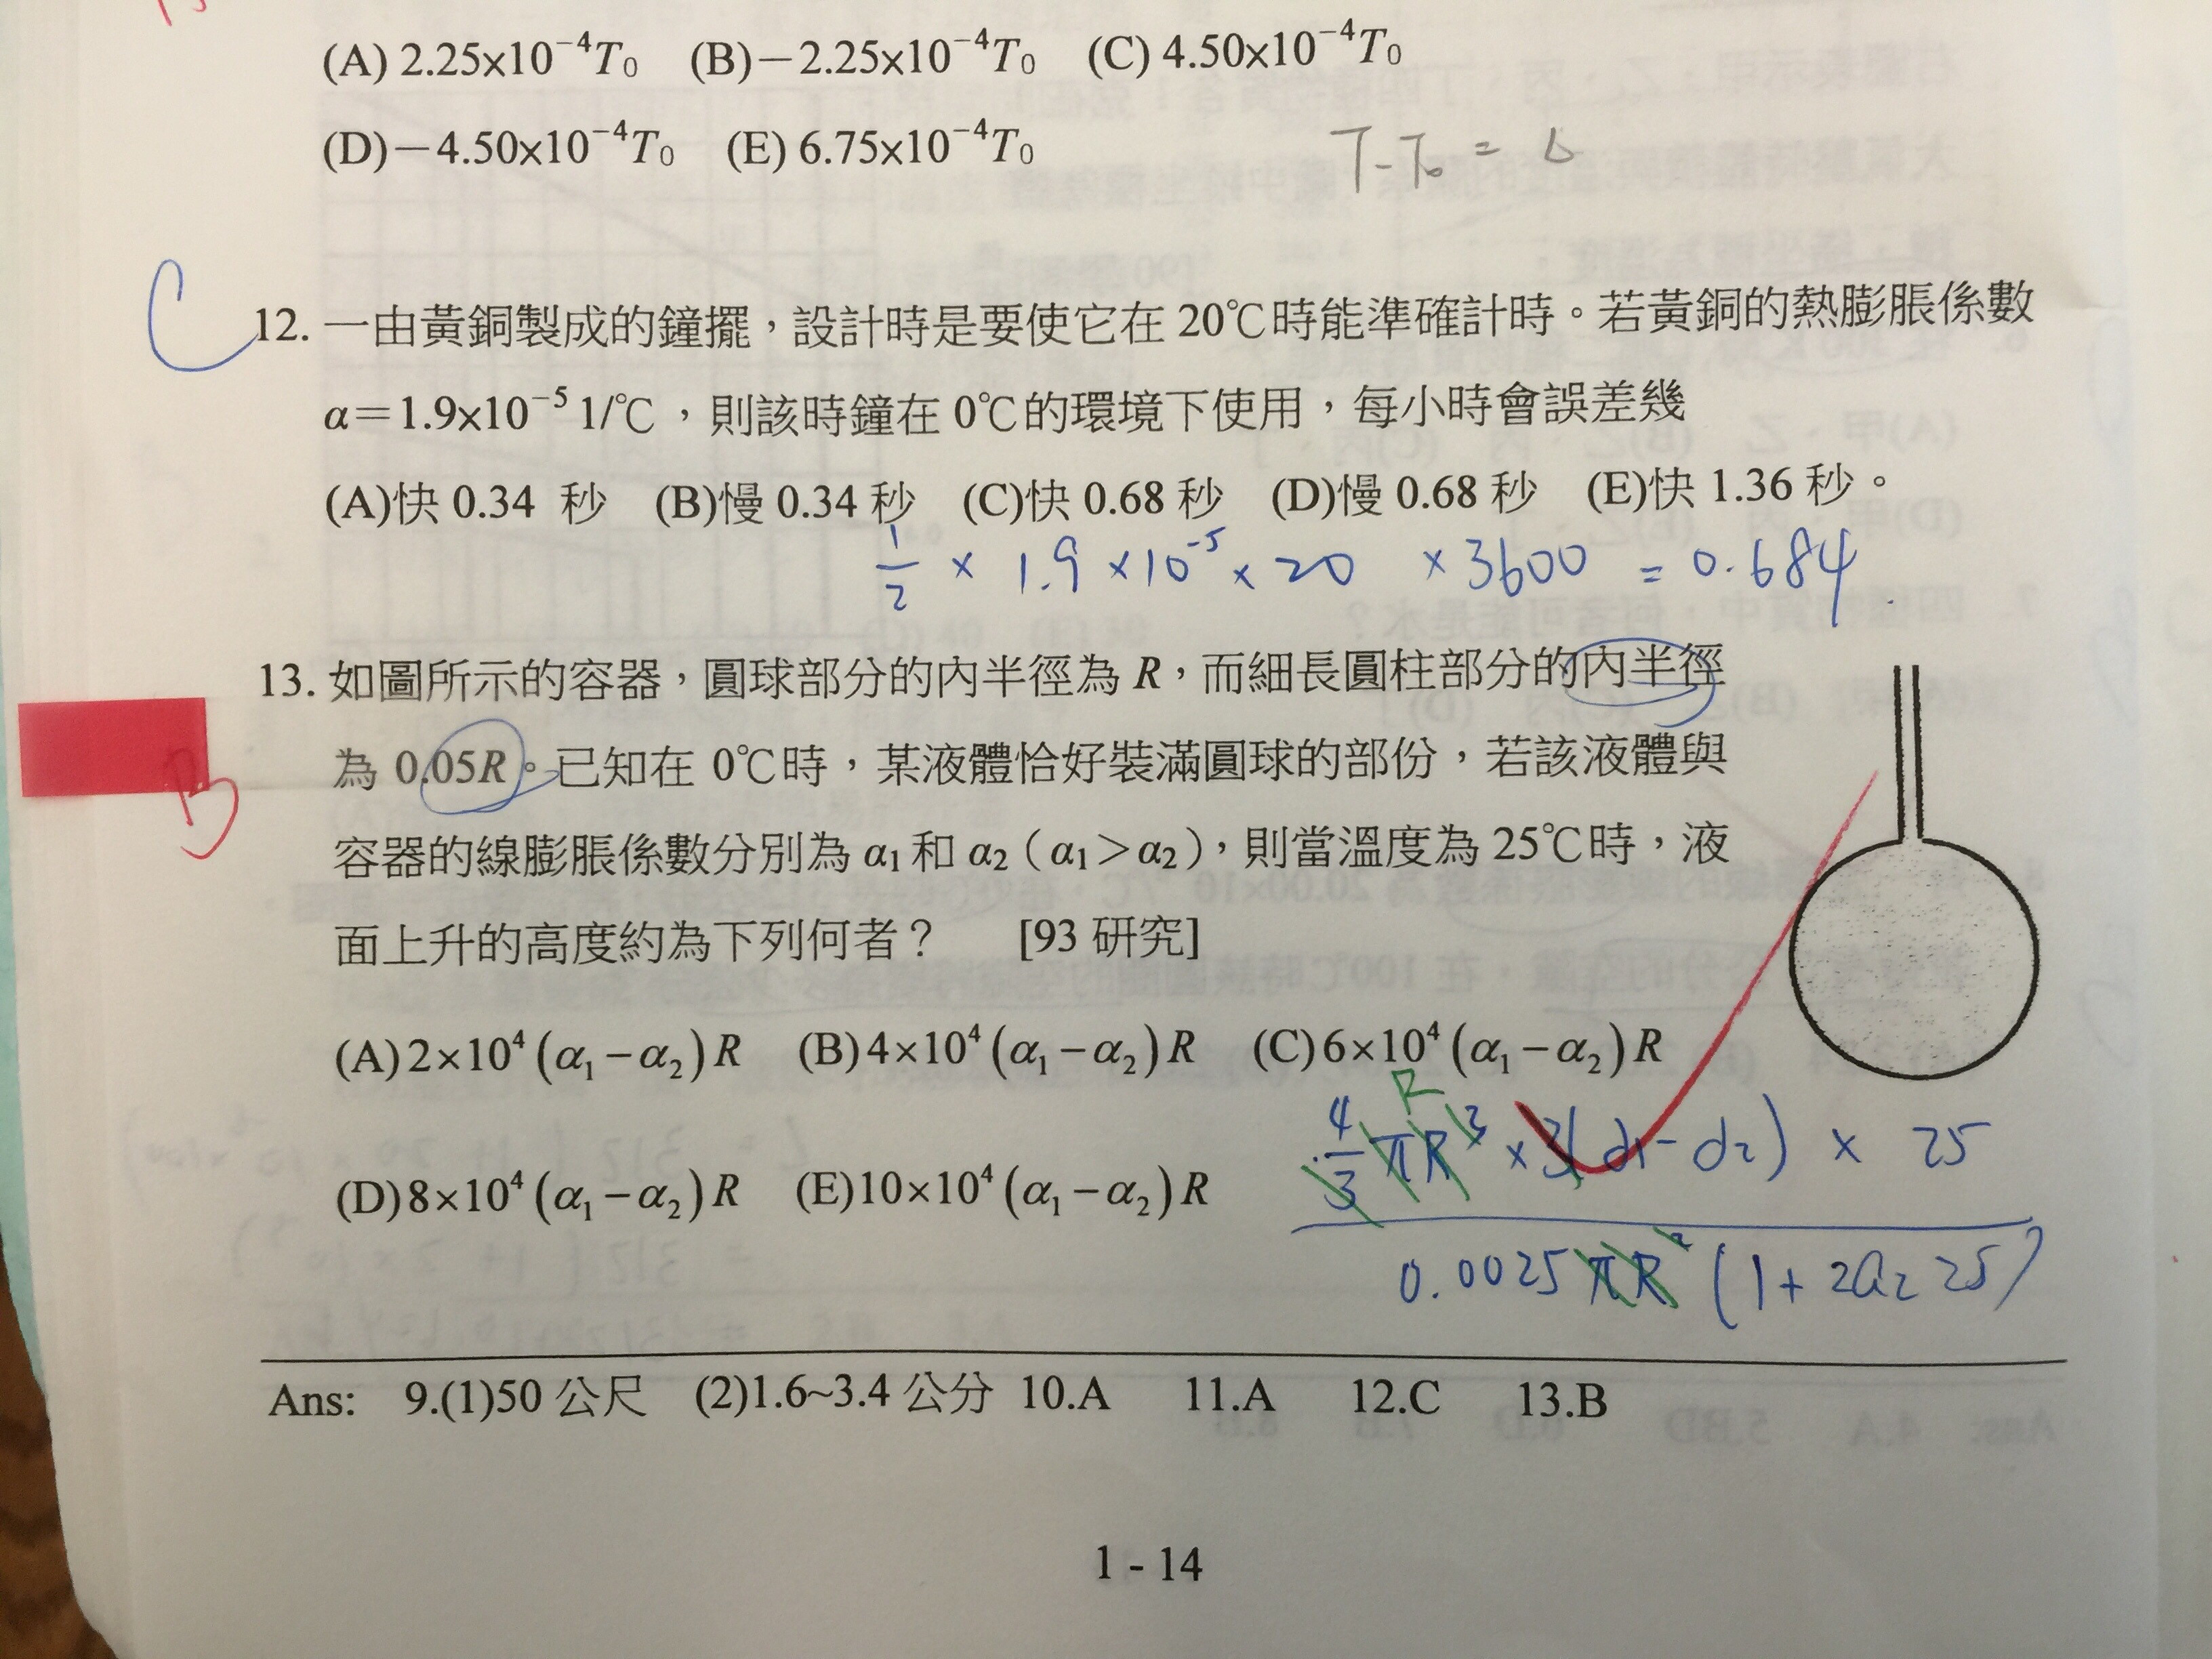 (A) 2.25×10⁻⁴T₀ (B)－2.25×10⁻⁴T₀ (C) 4.50×10⁻⁴T₀
(D)－4.50×10⁻⁴T₀ (E) 6.75×10⁻⁴T₀
T-T₀ = Δ
C
12. 一由黃銅製成的鐘擺，設計時是要使它在 20℃時能準確計時。若黃銅的熱膨脹係數
α＝1.9×10⁻⁵ 1/℃，則該時鐘在 0℃的環境下使用，每小時會誤差幾
(A)快 0.34 秒 (B)慢 0.34 秒 (C)快 0.68 秒 (D)慢 0.68 秒 (E)快 1.36 秒。
1/2 × 1.9 ×10⁻⁵ × 20 × 3600 = 0.684
13. 如圖所示的容器，圓球部分的內半徑為 R，而細長圓柱部分的內半徑
為 0.05R。已知在 0℃時，某液體恰好裝滿圓球的部份，若該液體與
B
容器的線膨脹係數分別為 α₁ 和 α₂（α₁＞α₂），則當溫度為 25℃時，液
面上升的高度約為下列何者？ [93 研究]
(A) 2×10⁴(α₁－α₂)R (B) 4×10⁴(α₁－α₂)R (C) 6×10⁴(α₁－α₂)R
R
4/3 πR³ × 3(α₁-α₂) × 25
(D) 8×10⁴(α₁－α₂)R (E) 10×10⁴(α₁－α₂)R
0.0025 πR² (1+2α₂25)
Ans: 9.(1)50 公尺 (2)1.6~3.4 公分 10.A 11.A 12.C 13.B
1 - 14